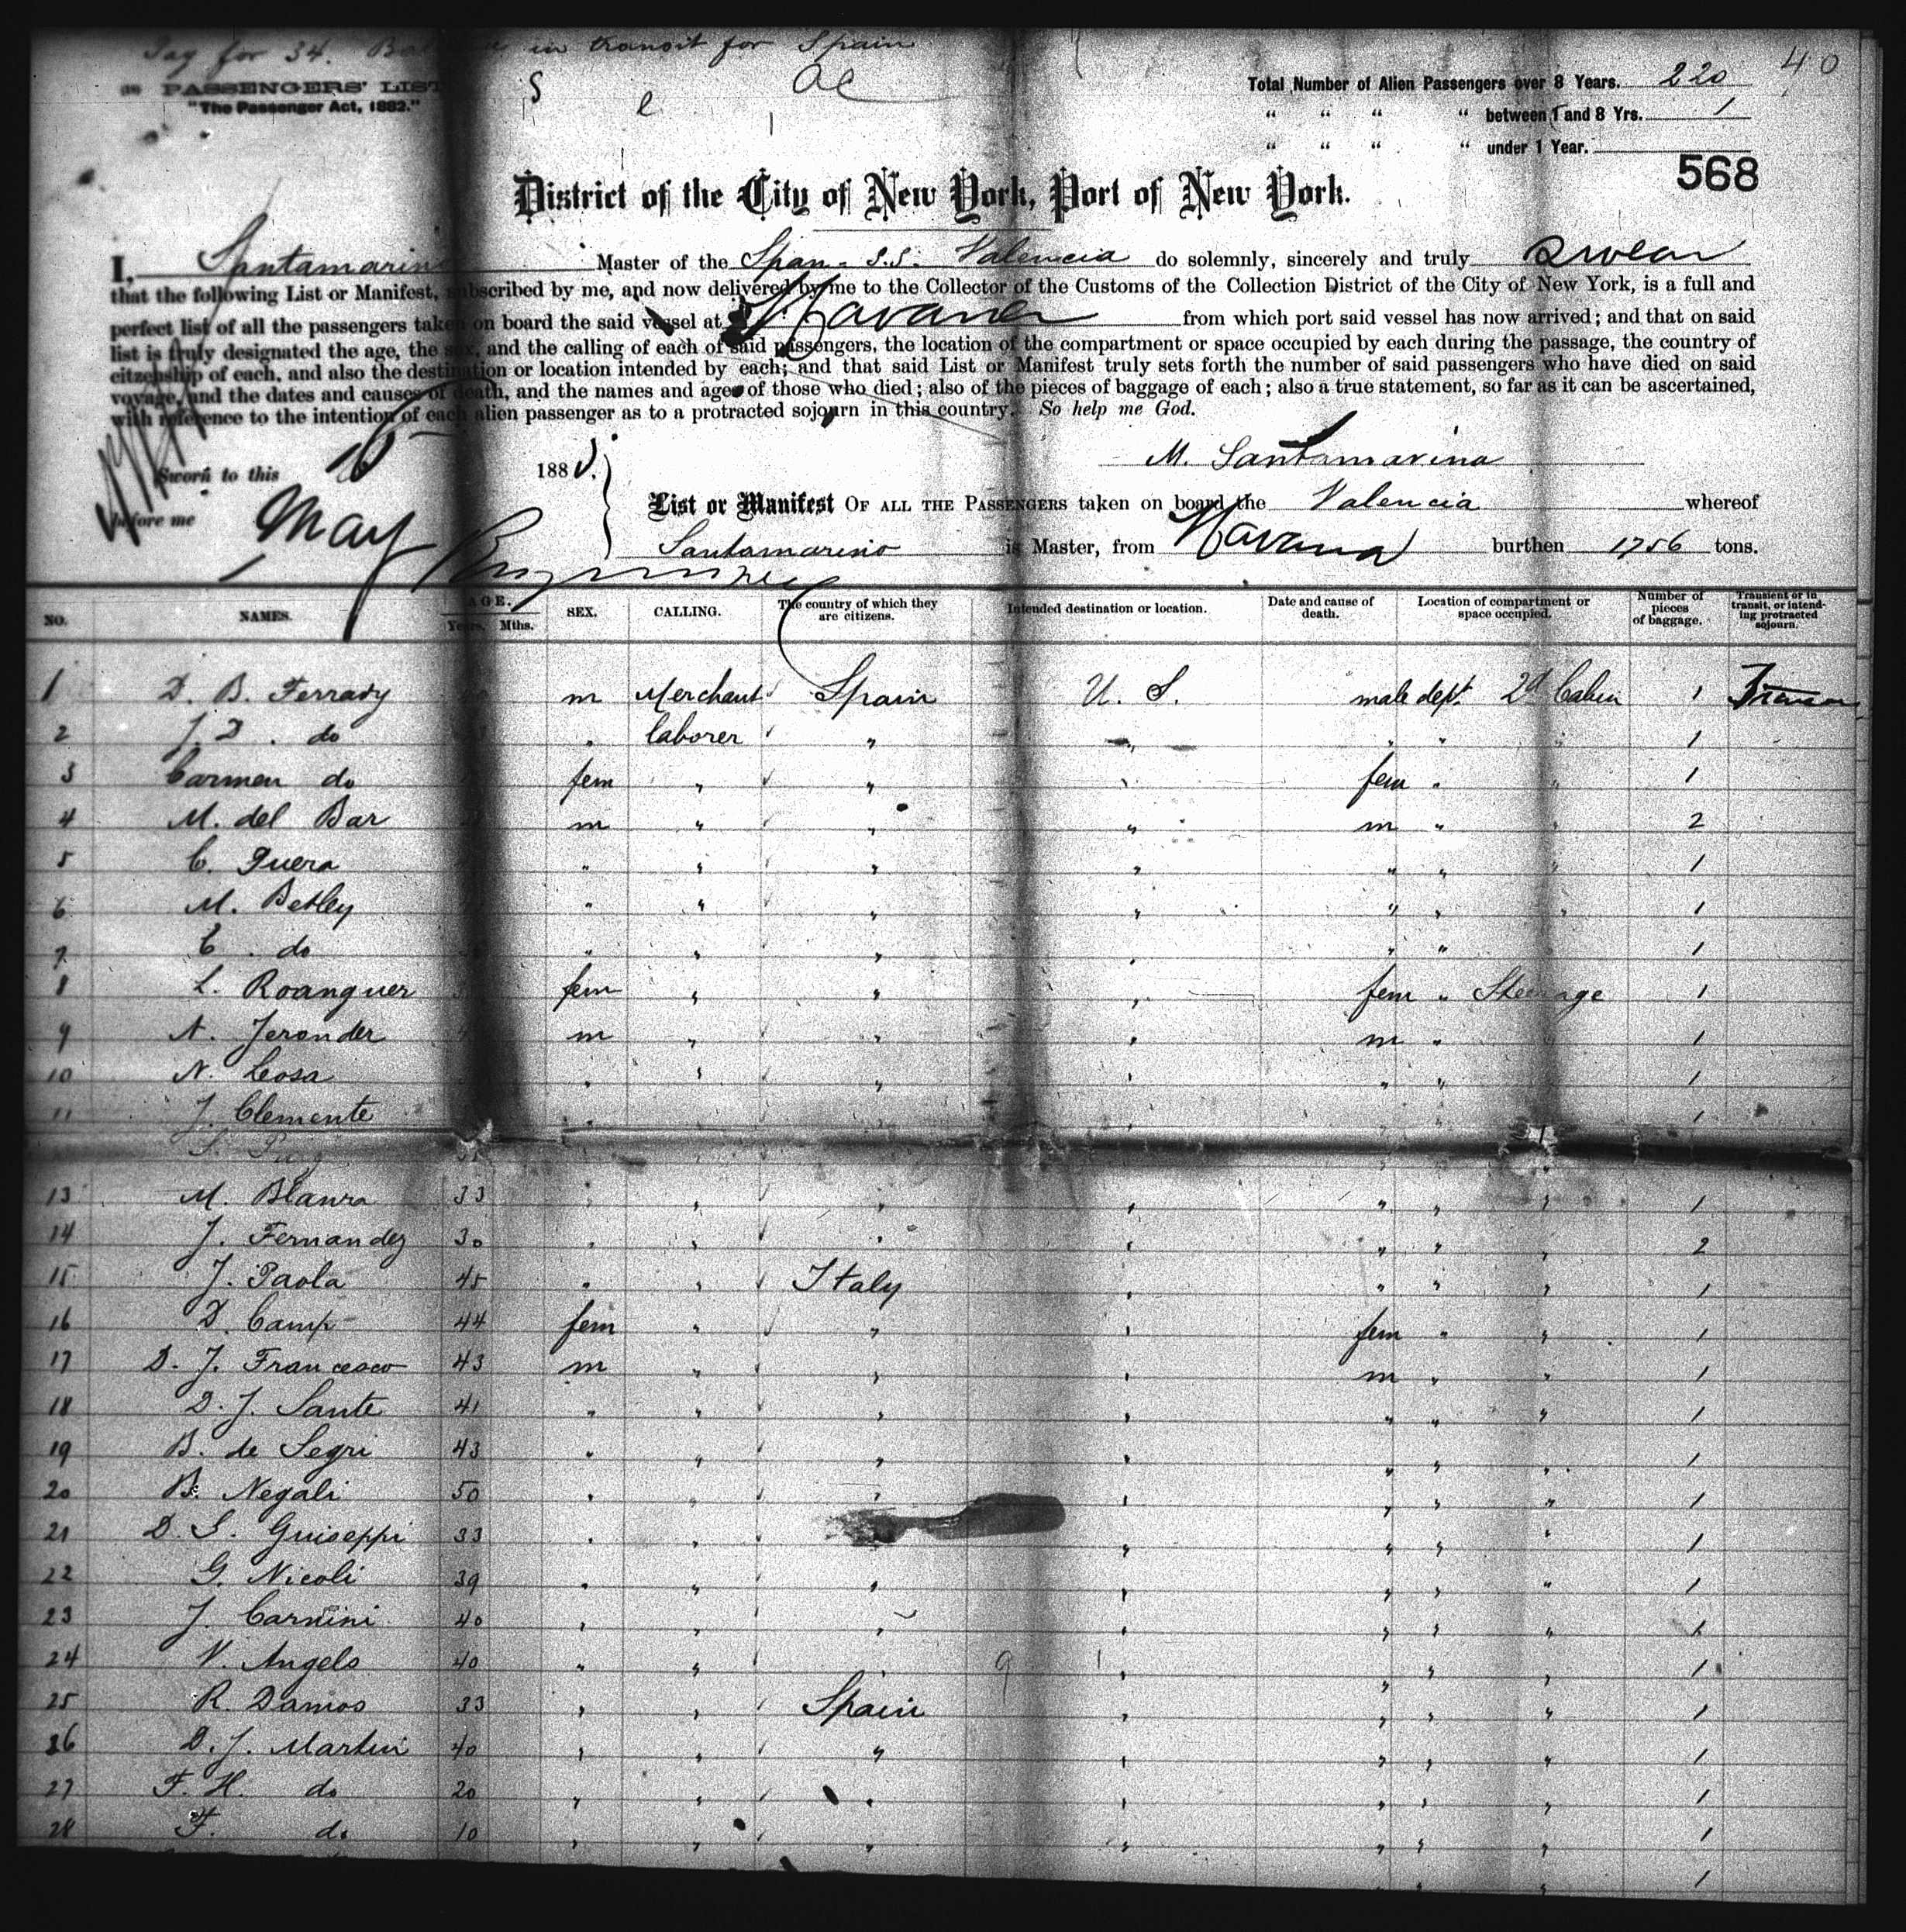 Pay for 34. in transit for Spain
40
PASSENGERS' LIST
"The Passenger Act, 1882."
Total Number of Alien Passengers over 8 Years. 220
" " " " between 1 and 8 Yrs. 1
" " " " under 1 Year.
568
District of the City of New York, Port of New York.
I, Santamarina Master of the Span. S.S. Valencia do solemnly, sincerely and truly swear
that the following List or Manifest, subscribed by me, and now delivered by me to the Collector of the Customs of the Collection District of the City of New York, is a full and
perfect list of all the passengers taken on board the said vessel at Havana from which port said vessel has now arrived; and that on said
list is truly designated the age, the sex, and the calling of each of said passengers, the location of the compartment or space occupied by each during the passage, the country of
citzenship of each, and also the destination or location intended by each; and that said List or Manifest truly sets forth the number of said passengers who have died on said
voyage, and the dates and causes of death, and the names and ages of those who died; also of the pieces of baggage of each; also a true statement, so far as it can be ascertained,
with reference to the intention of each alien passenger as to a protracted sojourn in this country. So help me God.
M. Santamarina
Sworn to this 188
before me May
List or Manifest OF ALL THE PASSENGERS taken on board the Valencia whereof
Santamarino is Master, from Havana burthen 1756 tons.
NO. NAMES. AGE. Years. Mths. SEX. CALLING. The country of which they are citizens. Intended destination or location. Date and cause of death. Location of compartment or space occupied. Number of pieces of baggage. Transient or in transit, or intending protracted sojourn.
1 D. B. Ferrady m Merchant Spain U. S. male dept. 2d Cabin 1
2 J. D. do " laborer " " " " " 1
3 Carmen do fem " " " fem " " 1
4 M. del Bar m " " " m " " 2
5 C. Guera " " " " " " " 1
6 M. Betley " " " " " " " 1
7 C. do " " " " " " 1
8 L. Roanguer fem " " " fem " Steerage 1
9 N. Jeronder m " " " m " 1
10 N. Leosa " " " " " " 1
11 J. Clemente " 1
S. Puig
13 M. Blanra 33 " " " " " " " 1
14 J. Fernandez 30 " " " " " " " 2
15 J. Paola 45 " " Italy " " " " 1
16 D. Camp 44 fem " " " fem " " 1
17 D. J. Francesco 43 m " " " m " " 1
18 D. J. Sante 41 " " " " " " " 1
19 B. de Segri 43 " " " " " " " 1
20 B. Negali 50 " " " " " " " 1
21 D. S. Guiseppi 33 " " " " " " 1
22 G. Nicoli 39 " " " " " " " 1
23 J. Carnini 40 " " " " " " " 1
24 V. Angelo 40 " " " " " " " 1
25 R. Damos 33 " " Spain " " " " 1
26 D. J. Martin 40 " " " " " " " 1
27 F. H. do 20 " " " " " " " 1
28 F. do 10 " " " " " " " 1
" " " 1